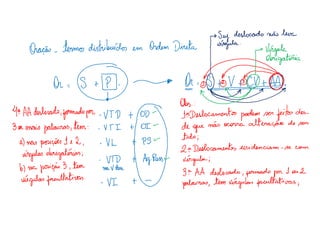 Oração - termos distribuídos em Ordem Direta
Suj. deslocado não leva
vírgula
Vírgula
obrigatória
Or = S + P
Or = S + V + C + AA
4º AA deslocado, formado por
3 ou mais palavras, tem:
a) nas posições 1 e 2,
vírgulas obrigatórias;
b) na posição 3, tem
vírgulas facultativas
. VTD + OD
. VTI + OI
. VL + PS
. VTD + Ag. Pass
na V. Pass
. VI + -
Obs:
1º Deslocamentos podem ser feitos des
de que não ocorra alteração de sen
tido;
2º Deslocamentos evidenciam-se com
vírgulas;
3º AA deslocado, formado por 1 ou 2
palavras, tem vírgulas facultativas;